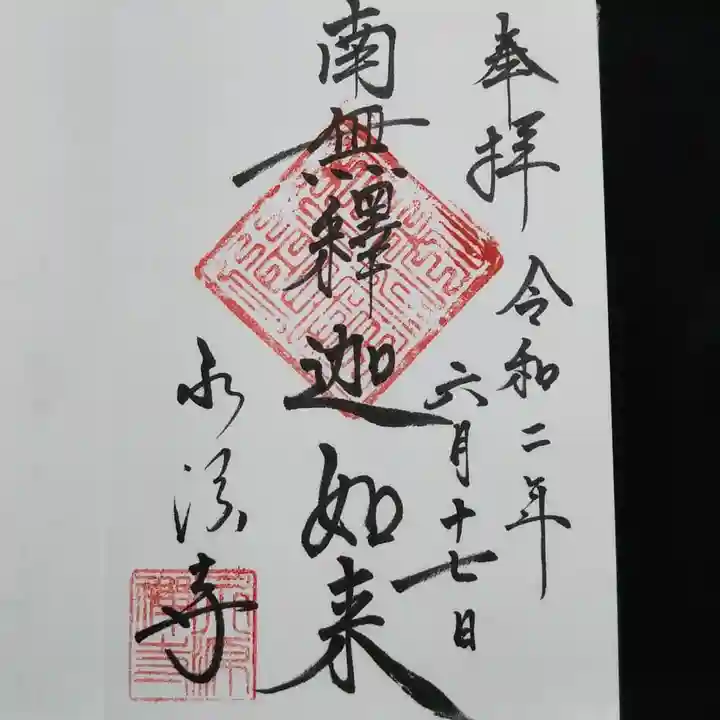 奉拝
令和二年
六月十七日
南無釋迦如来
永源寺